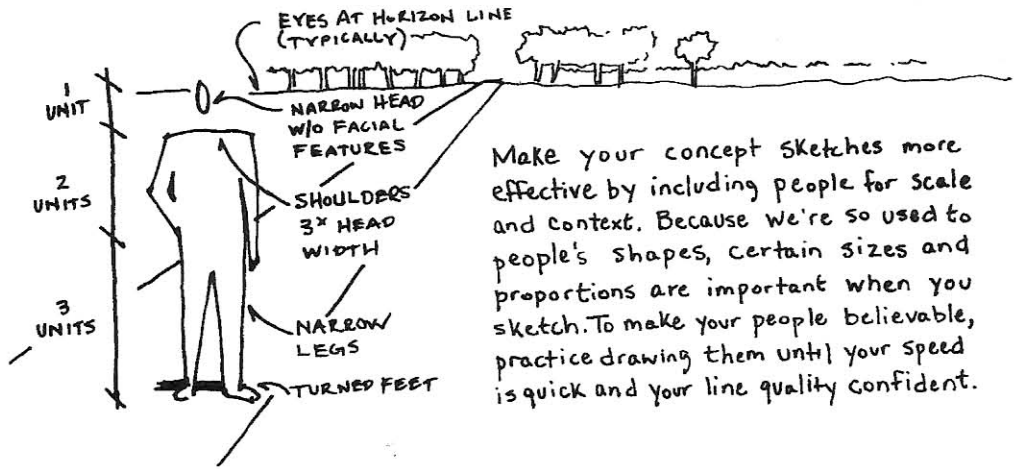 EYES AT HORIZON LINE
(TYPICALLY)
1
UNIT
NARROW HEAD
W/O FACIAL
FEATURES
2
UNITS
SHOULDERS
3x HEAD
WIDTH
3
UNITS
NARROW
LEGS
TURNED FEET
Make your concept sketches more
effective by including people for scale
and context. Because we're so used to
people's shapes, certain sizes and
proportions are important when you
sketch. To make your people believable,
practice drawing them until your speed
is quick and your line quality confident.